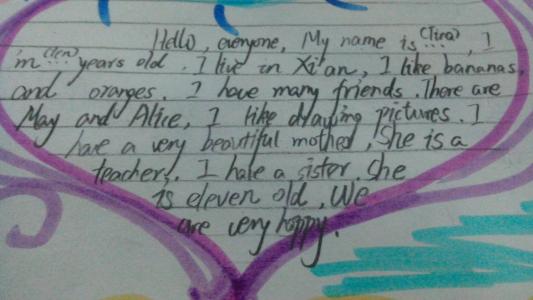 Hello, everyone, My name is (Tina) ..., I
'm (ten) ... years old. I live in Xi'an, I like bananas,
and oranges. I have many friends. There are
May and Alice, I like drawing pictures. I
have a very beautiful mother, She is a
teachers. I have a sister. she
is eleven old, We
are very happy.